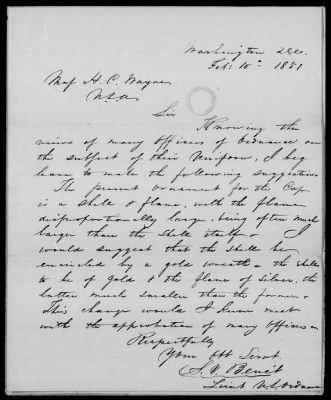 Washington D.C.
Feb: 10th 1851
Maj H. C. Wayne
U.S.A.
Sir
Knowing the
views of many Officers of Ordnance on
the subject of their Uniform, I beg
leave to make the following suggestions
The present Ornament for the Cap
is a Shell & flame, with the flame
disproportionally large, being often much
larger than the Shell itself. I
would suggest that the Shell be
encircled by a gold wreath - the shell
to be of gold & the flame of Silver, the
latter much smaller than the former.
This change would I know meet
with the approbation of many Officers.
Respectfully
Your Obt Servt.
S. V. Benét
Lieut U.S. Ordnance